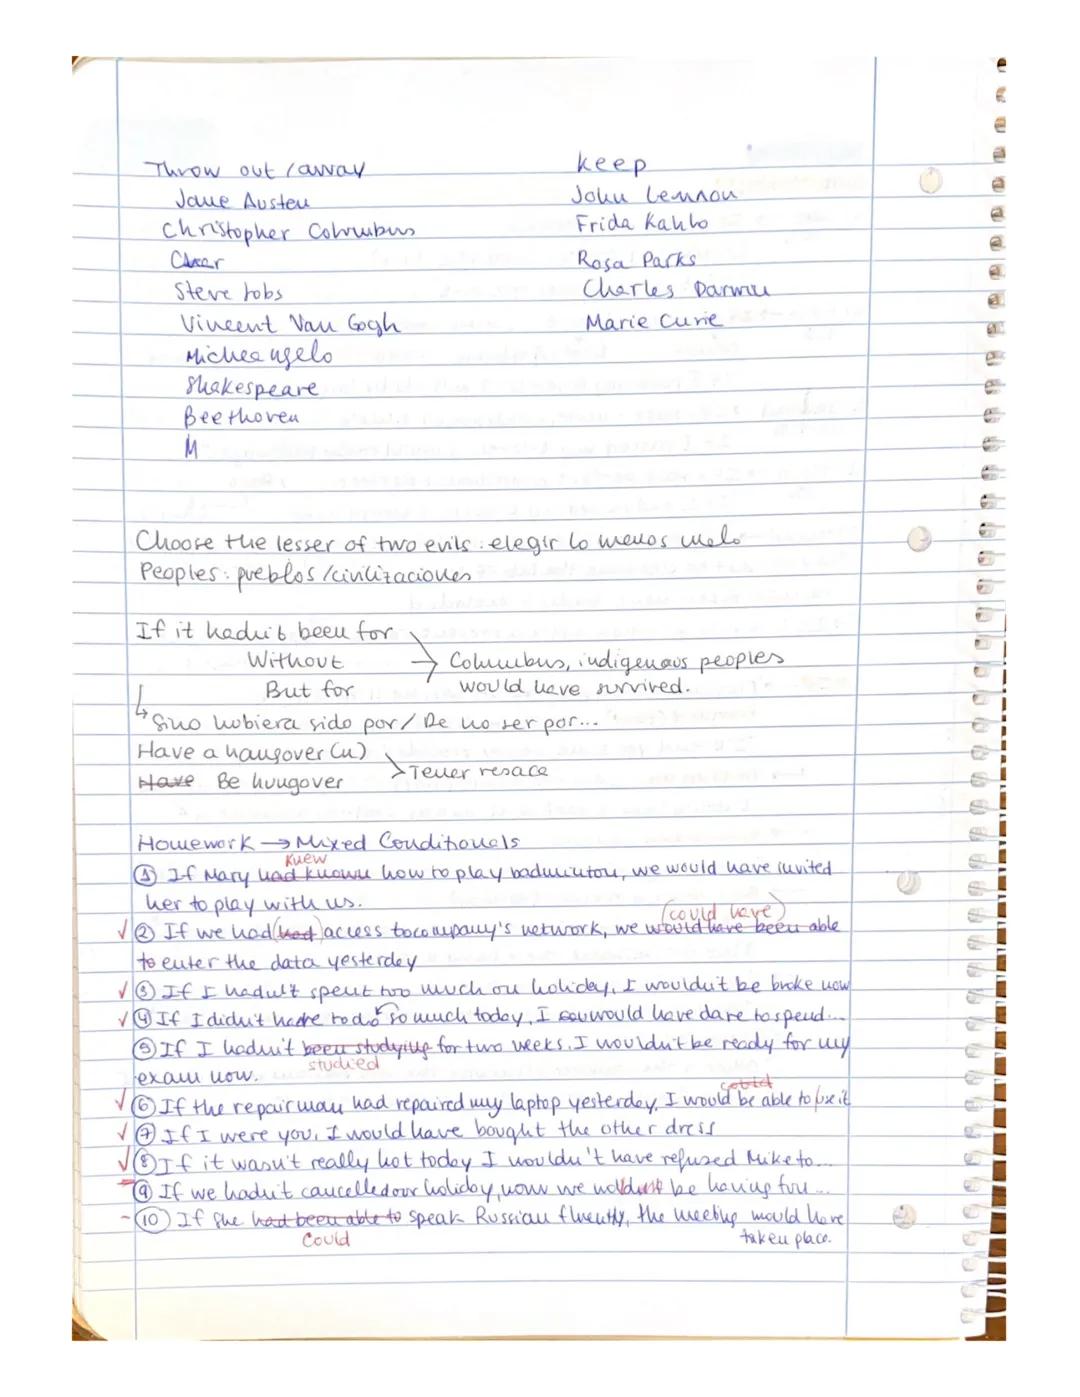 Throw out / away
keep
Jane Austen
John Lennon
Christopher Columbus
Frida Kahlo
Cher
Rosa Parks
Steve Jobs
Charles Darwin
Vincent Van Gogh
Marie Curie
Micheangelo
Shakespeare
Beethoven
M
Choose the lesser of two evils: elegir lo menos malo
Peoples: pueblos/civilizaciones
If it hadn't been for
Without → Columbus, indigenous peoples
But for would have survived.
↳ Sino hubiera sido por / De no ser por...
Have a hangover (n)
> Tener resaca
Have Be hungover
Homework → Mixed Conditionals
knew
① If Mary had known how to play badminton, we would have invited
her to play with us.
(could have)
√ ② If we had (had) access to company's network, we would have been able
to enter the data yesterday
√ ③ If I hadn't spent too much on holiday, I wouldn't be broke now
√ ④ If I didn't have to do so much today, I would have dare to spend...
⑤ If I hadn't been studying for two weeks. I wouldn't be ready for my
studied
exam now.
could
√ ⑥ If the repairman had repaired my laptop yesterday, I would be able to use it
√ ⑦ If I were you, I would have bought the other dress
√ ⑧ If it wasn't really hot today I wouldn't have refused Mike to...
⑨ If we hadn't cancelled our holiday, now we would be having fun...
- ⑩ If she had been able to speak Russian fluently, the meeting would have
could
taken place.